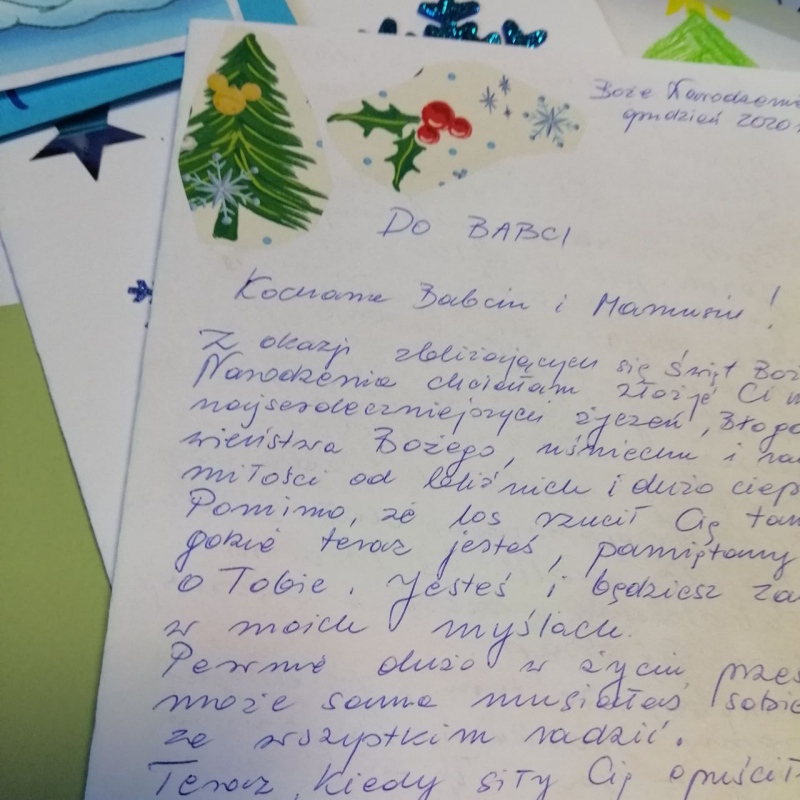 Boże Narodzenie
grudzień 2020 r
DO BABCI
Kochane Babciu i Mamusiu!
Z okazji zbliżających się Świąt Boż
Narodzenia chciałam złożyć Ci m
najserdeczniejszych życzeń, Błogo
wieństwa Bożego, uśmiechu i
miłości od bliźnich i dużo ciep
Pomimo, że los rzucił Cię tam
gdzie teraz jesteś, pamiętamy
o Tobie. Jesteś i będziesz za
w moich myślach.
Pewnie dużo w życiu przes
może sama musiałaś sobie
ze wszystkim radzić.
Teraz, kiedy siły Cię opuścił